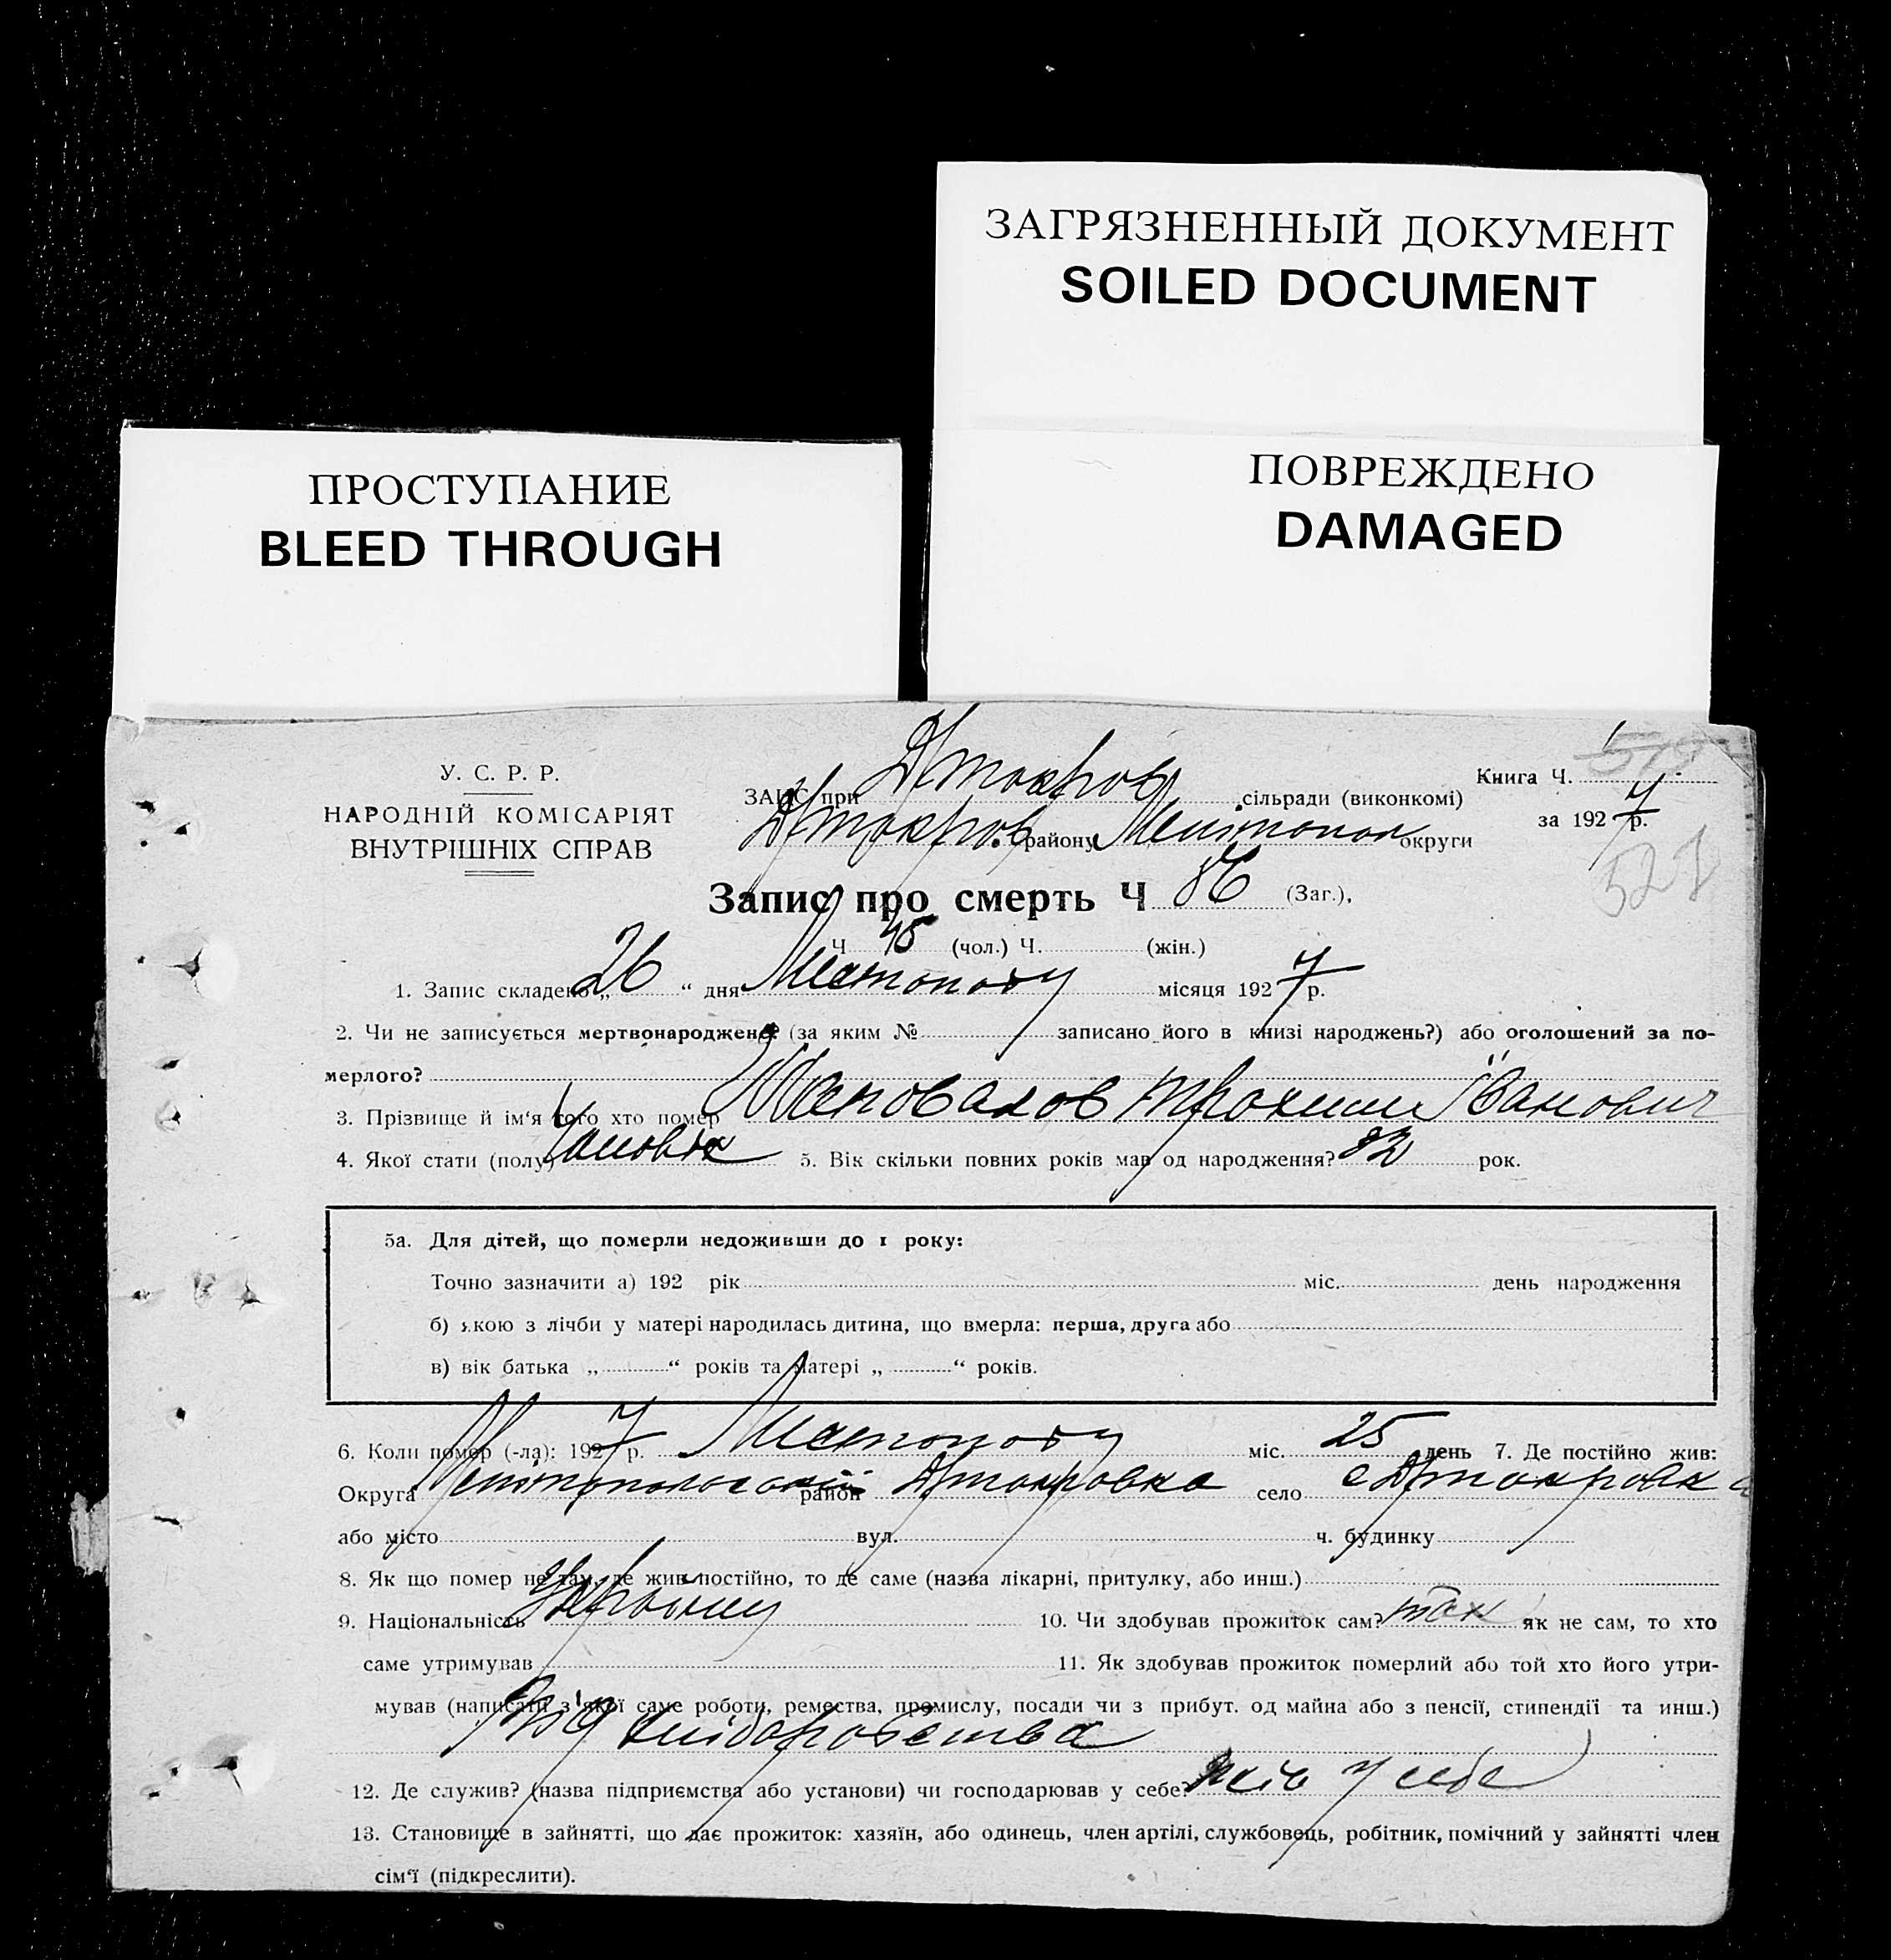 ЗАГРЯЗНЕННЫЙ ДОКУМЕНТ
SOILED DOCUMENT
ПРОСТУПАНИЕ
BLEED THROUGH
ПОВРЕЖДЕНО
DAMAGED
У. С. Р. Р.
НАРОДНІЙ КОМІСАРІЯТ
ВНУТРІШНІХ СПРАВ
ЗАПИС при Якимов сільради (виконкомі)
району Мелітопол округи
Книга Ч.
за 1927 р.
521
Запис про смерть Ч 86 (Заг.),
Ч 45 (чол.) Ч. (жін.)
1. Запис складено „26“ дня Листопаду місяця 1927 р.
2. Чи не записується мертвонароджене? (за яким № записано його в книзі народжень?) або оголошений за по-
мерлого?
3. Прізвище й ім'я того хто помер Шаповалов Трохим Іванович
4. Якої стати (полу) Чоловік 5. Вік скільки повних років мав од народження? 82 рок.
5а. Для дітей, що померли недоживши до 1 року:
Точно зазначити а) 192 рік міс. день народження
б) якою з лічби у матері народилась дитина, що вмерла: перша, друга або
в) вік батька „ “ років та матері „ “ років.
6. Коли помер (-ла): 1927 р. Листопаду міс. 25 день 7. Де постійно жив:
Округа Мелітопольської район село
або місто вул. ч. будинку
8. Як що помер не там, де жив постійно, то де саме (назва лікарні, притулку, або инш.)
9. Національність 10. Чи здобував прожиток сам? так як не сам, то хто
саме утримував 11. Як здобував прожиток померлий або той хто його утри-
мував (написати з якої саме роботи, ремества, промислу, посади чи з прибут. од майна або з пенсії, стипендії та инш.)
Від хліборобства
12. Де служив? (назва підприємства або установи) чи господарював у себе? у себе
13. Становище в зайнятті, що дає прожиток: хазяїн, або одинець, член артілі, службовець, робітник, помічний у зайнятті член
сім'ї (підкреслити).